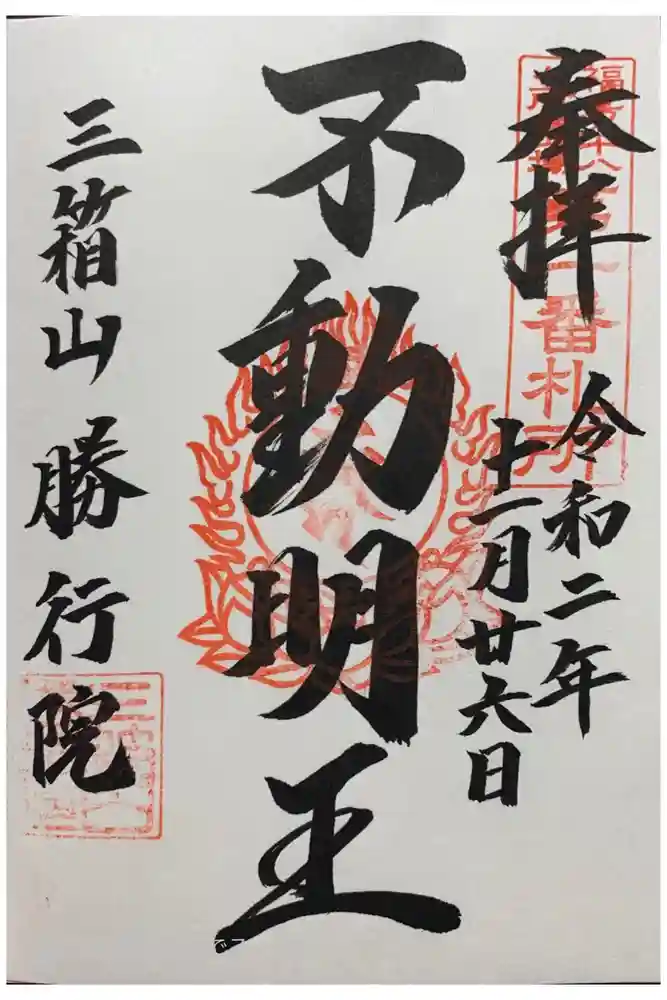 奉拝
令和二年
十二月廿六日
不動明王
三箱山 勝行院